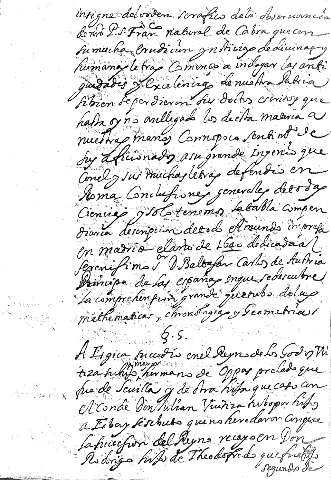 insigne del orden serafico dela observancia
de nro P. S. Franco natural de Cabra que con
su mucha erudicion y noticia de divinas y
humanas letras Començo a indagar las anti
guedades y Excelencias de nuestra Patria
si bien se perdieron sus doctos escritos que
hasta oy no an llegado los de ita materia a
nuestras manos Con no poco sentimdo de
sus aficionados, a su grande Ingenio que
Con el y sus muchas letras defendio en
Roma Conclusiones generales de todas
Ciencias y solo tenemos la tabla compen
diaria descripcion de todo el mundo impresa
en madrid el año de 1640 dedicada al
serenissimo sor D. Baltasar Carlos de Austria
Principe de las españas en que se descubre
la comprehension grande que tubo de las
mathematicas, chronologias y Geometrias
§. 5.
A Egica sucedio en el Reyno de los Godos Vvi
tiza su hijo, hermano de Oppas prelado que
fue de Sevilla y de otra hija que caso con
el Conde Don Julian Vvitiza tubo por hijos
a Eba y Sisebuto que no heredaron conque
la sucession del Reyno recayo en Don
Rodrigo hijo de Theodofredo que fue hijo
segundo de